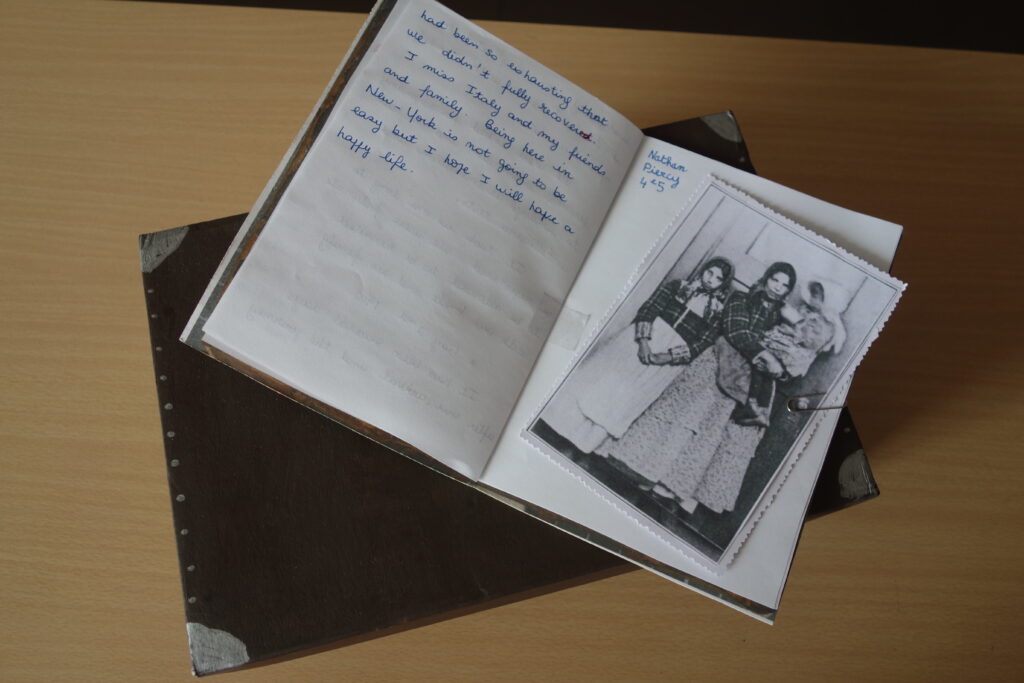 had been so exhausting that
we didn't fully recovered.
I miss Italy and my friends
and family. Being here in
New-York is not going to be
easy but I hope I will have a
happy life.
Nathan
Piercy
4e5